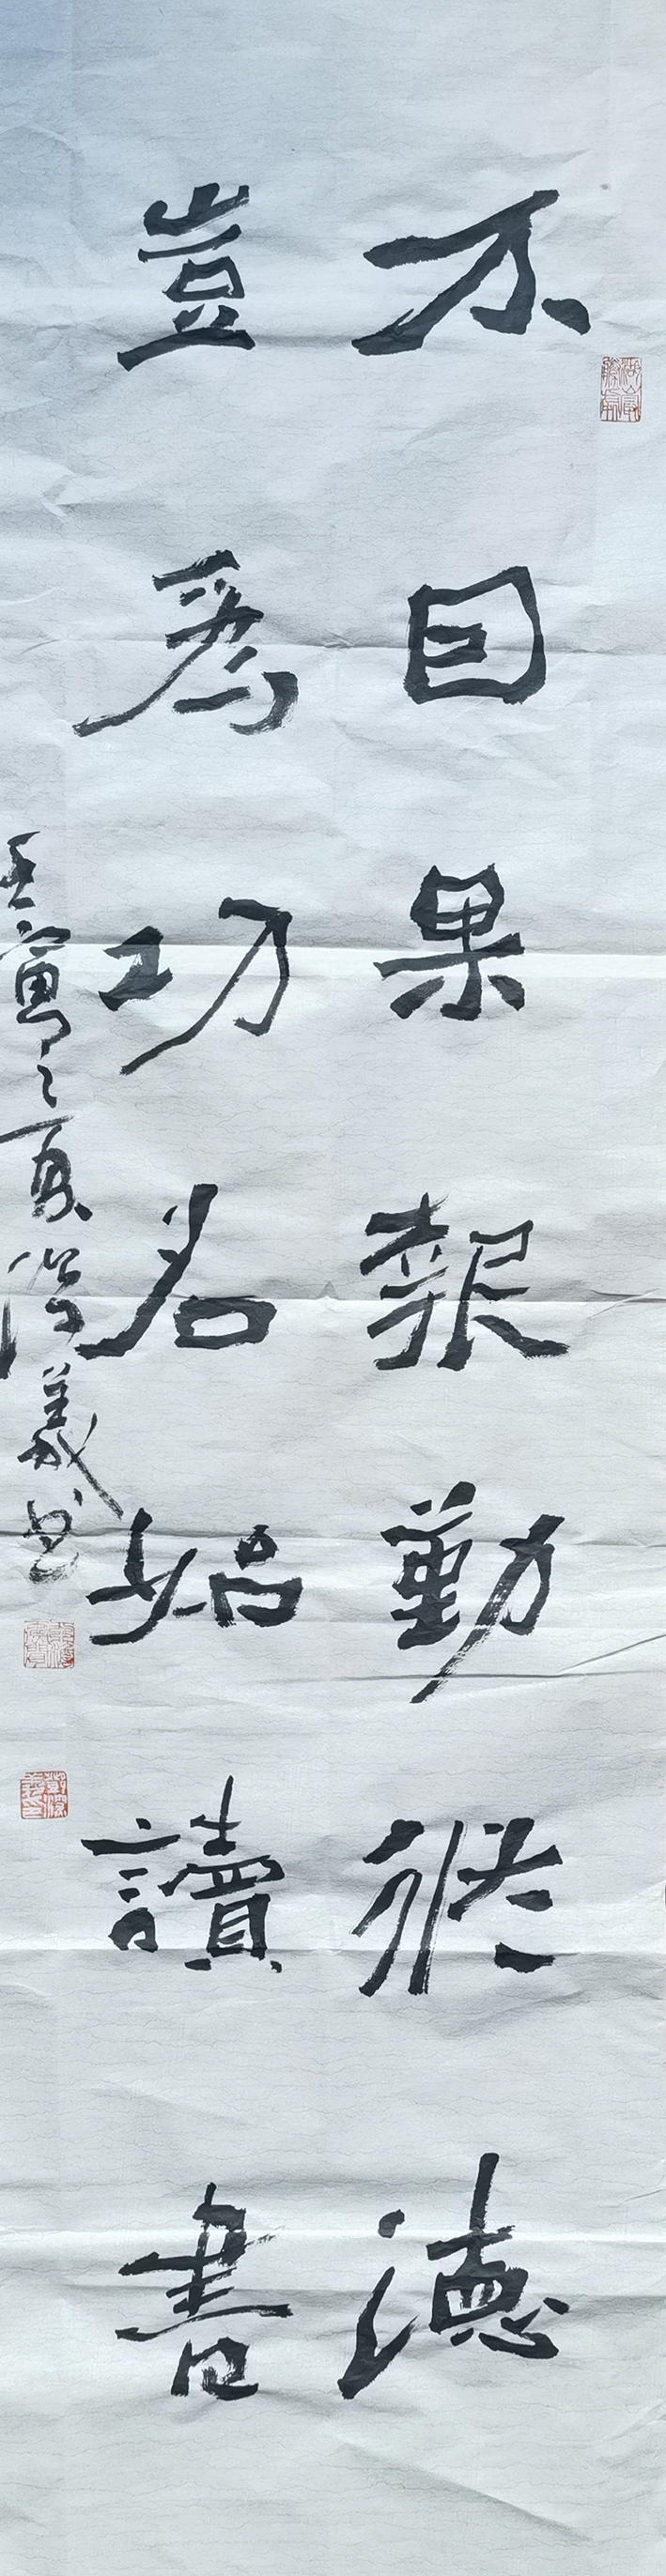 不因果報勤修德
豈為功名始讀書
壬寅之夏 義书